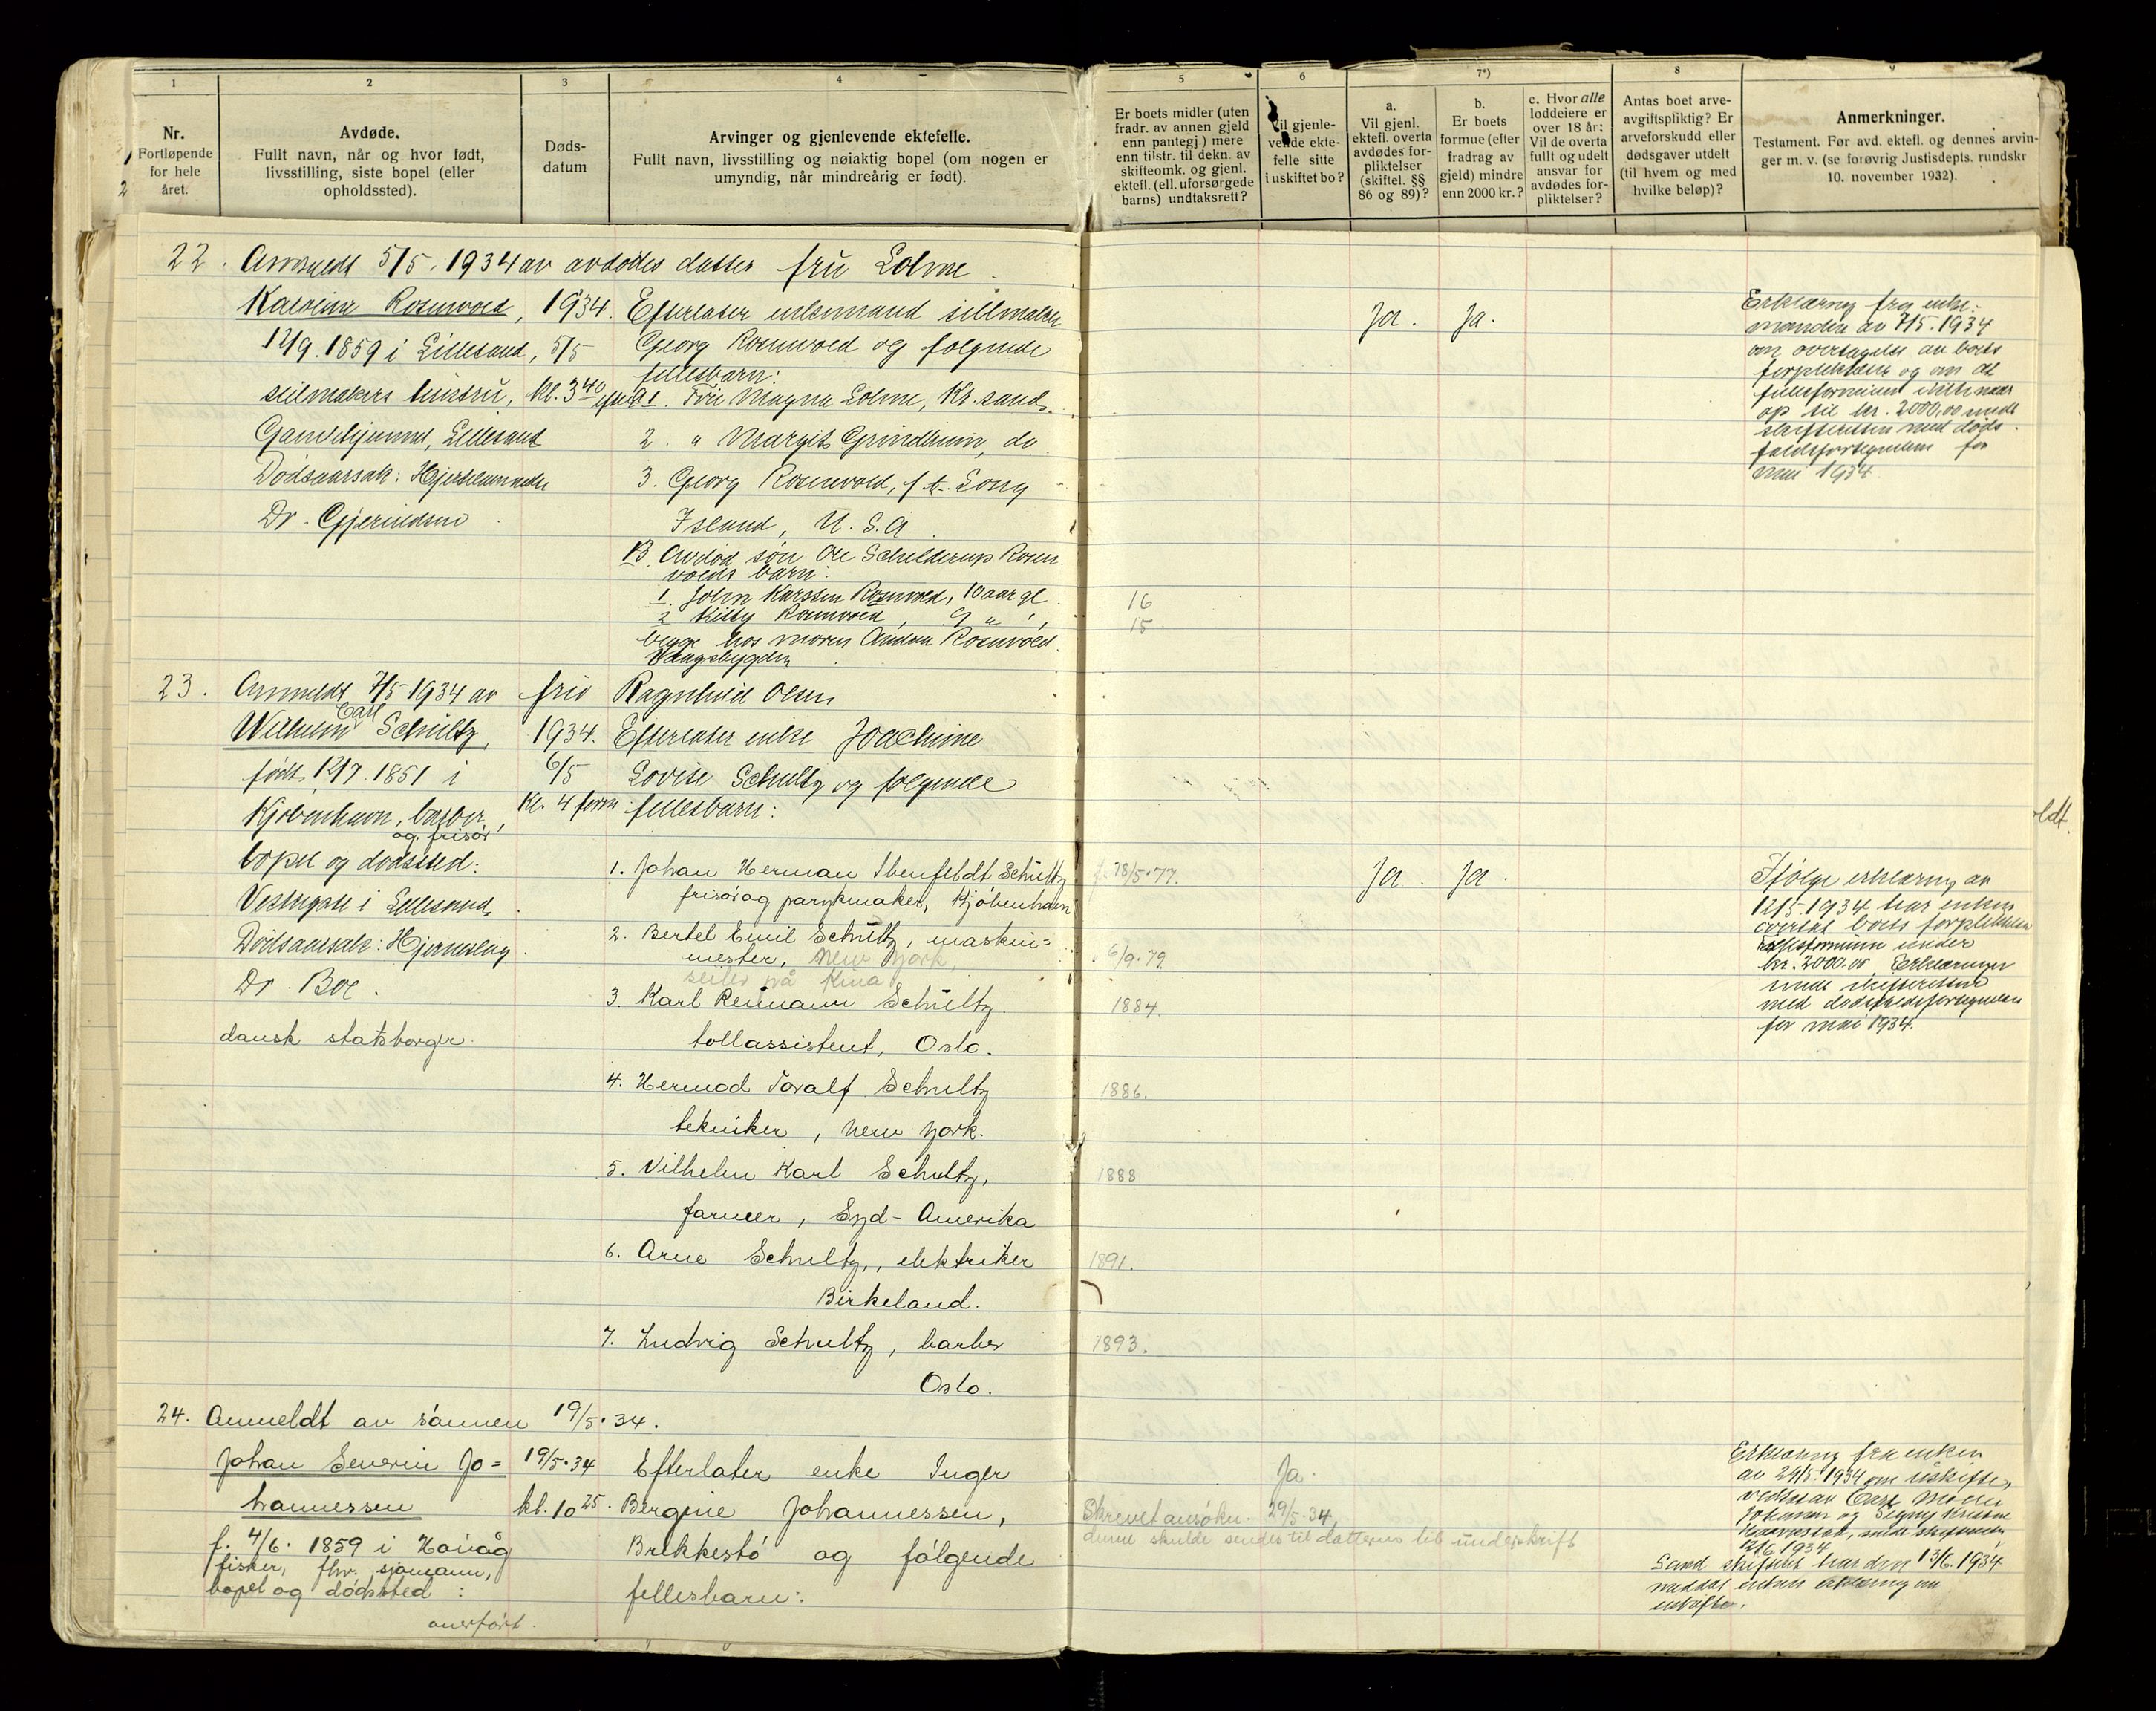 1
2
3
4
Nr.
Fortløpende
for hele
året.
Avdøde.
Fullt navn, når og hvor født,
livsstilling, siste bopel (eller
opholdssted).
Døds-
datum
Arvinger og gjenlevende ektefelle.
Fullt navn, livsstilling og nøiaktig bopel (om nogen er
umyndig, når mindreårig er født).
5
6
7*)
8
9
Er boets midler (uten
fradr. av annen gjeld
enn pantegj.) mere
enn tilstr. til dekn. av
skifteomk. og gjenl.
ektefl. (ell. uforsørgede
barns) undtaksrett?
Vil gjenle-
vende ekte-
felle sitte
i uskiftet bo?
a.
Vil gjenl.
ektefl. overta
avdødes for-
pliktelser
(skiftel. §§
86 og 89)?
b.
Er boets
formue (efter
fradrag av
gjeld) mindre
enn 2000 kr.?
c. Hvor alle
loddeiere er
over 18 år:
Vil de overta
fullt og udelt
ansvar for
avdødes for-
pliktelser?
Antas boet arve-
avgiftspliktig? Er
arveforskudd eller
dødsgaver utdelt
(til hvem og med
hvilke beløp)?
Anmerkninger.
Testament. Før avd. ektefl. og dennes arvin-
ger m. v. (se forøvrig Justisdepts. rundskr
10. november 1932).
22. Anmeldt 5/5. 1934 av avdødes datter fru Lolme
Rosenvold, 1934.
12/9. 1859 i Lillesand, 5/5
seilmakers hustru, kl. 3 40
Lillesand
Dødsaarsak:
Dr. Gjerindsen
Efterlater enkemand seilmaker
Georg Rosenvold og følgende
fellesbarn:
1. Fru Magna Lolme, Kr.sand.
2. " Margit Grindheim, do
3. Georg Rosenvold, f. t. Long
Island, U.S.A
B. Avdød søn Ole Schelderup Rosen
volds barn:
1. John Karsten Rosenvold, 10 aar gl.
2 Kitty Rosenvold, 9 " "
begge hos moren Rosenvold
Vaagsbygden
16
15
Ja. Ja.
Erklæring fra enke-
manden av 7/5. 1934
om overtagelse av boets
forpliktelser og om at
fellesformuen ikke naar
op til kr. 2000,00 sendt
skifteretten med døds-
faldsfortegnelsen for
mai 1934.
23. Anmeldt 7/5 1934 av frø Ragnhild Olsen
Carl
Wilhelm Schultz, 1934.
født 12/7. 1851 i 6/5
Kjøbenhavn, barber, Kl. 4 form
og frisør
bopel og dødssted:
Vestregate i Lillesand.
Dødsaarsak: Hjerneslag.
Dr. Boe.
dansk statsborger.
Efterlater enke Joachime
Lovise Schultz og følgende
fellesbarn:
1. Johan Herman Ibenfeldt Schultz
frisør og parykmaker, Kjøbenhavn
2. Bertel Emil Schultz, maskin=
mester, New York,
seiler på Kina
3. Karl Reimann Schultz.
tollassistent, Oslo.
4. Hermod Toralf Schultz
tekniker, New York.
5. Vilhelm Karl Schultz,
farmer, Syd-Amerika
6. Arne Schultz, elektriker
Birkeland.
7. Ludvig Schultz, barber
Oslo.
f. 28/5.77.
6/9.79.
1884.
1886.
1888
1891.
1893.
Ja. Ja.
Ifølge erklæring av
12/5. 1934 har enken
overtat boets forpliktelser
Fellesformuen under
kr. 2000.00. Erklæringen
sendt skifteretten
med dødsfaldsfortegnelsen
for mai 1934.
oldt.
24. Anmeldt av sønnen 19/5.34.
Johan Severin Jo=
hannessen
19/5.34
kl. 10 25.
f. 4/6. 1859 i Høvåg
fisker, fhv. sjømann,
bopel og dødssted:
overført.
Efterlater enke Inger
Bergine Johannessen,
Brekkestø og følgende
fellesbarn:
Ja.
Skrevet ansøkn. 29/5.34,
denne skulde sendes til datteren til underskrift
Erklæring fra enken
av 29/5. 1934 om uskifte,
vedtat av
Johannes og Signy
sendt skifteretten
12/6 1934.
Sand skifterett har den 13/6. 1934
meddelt enken erklæring om
uskifte.